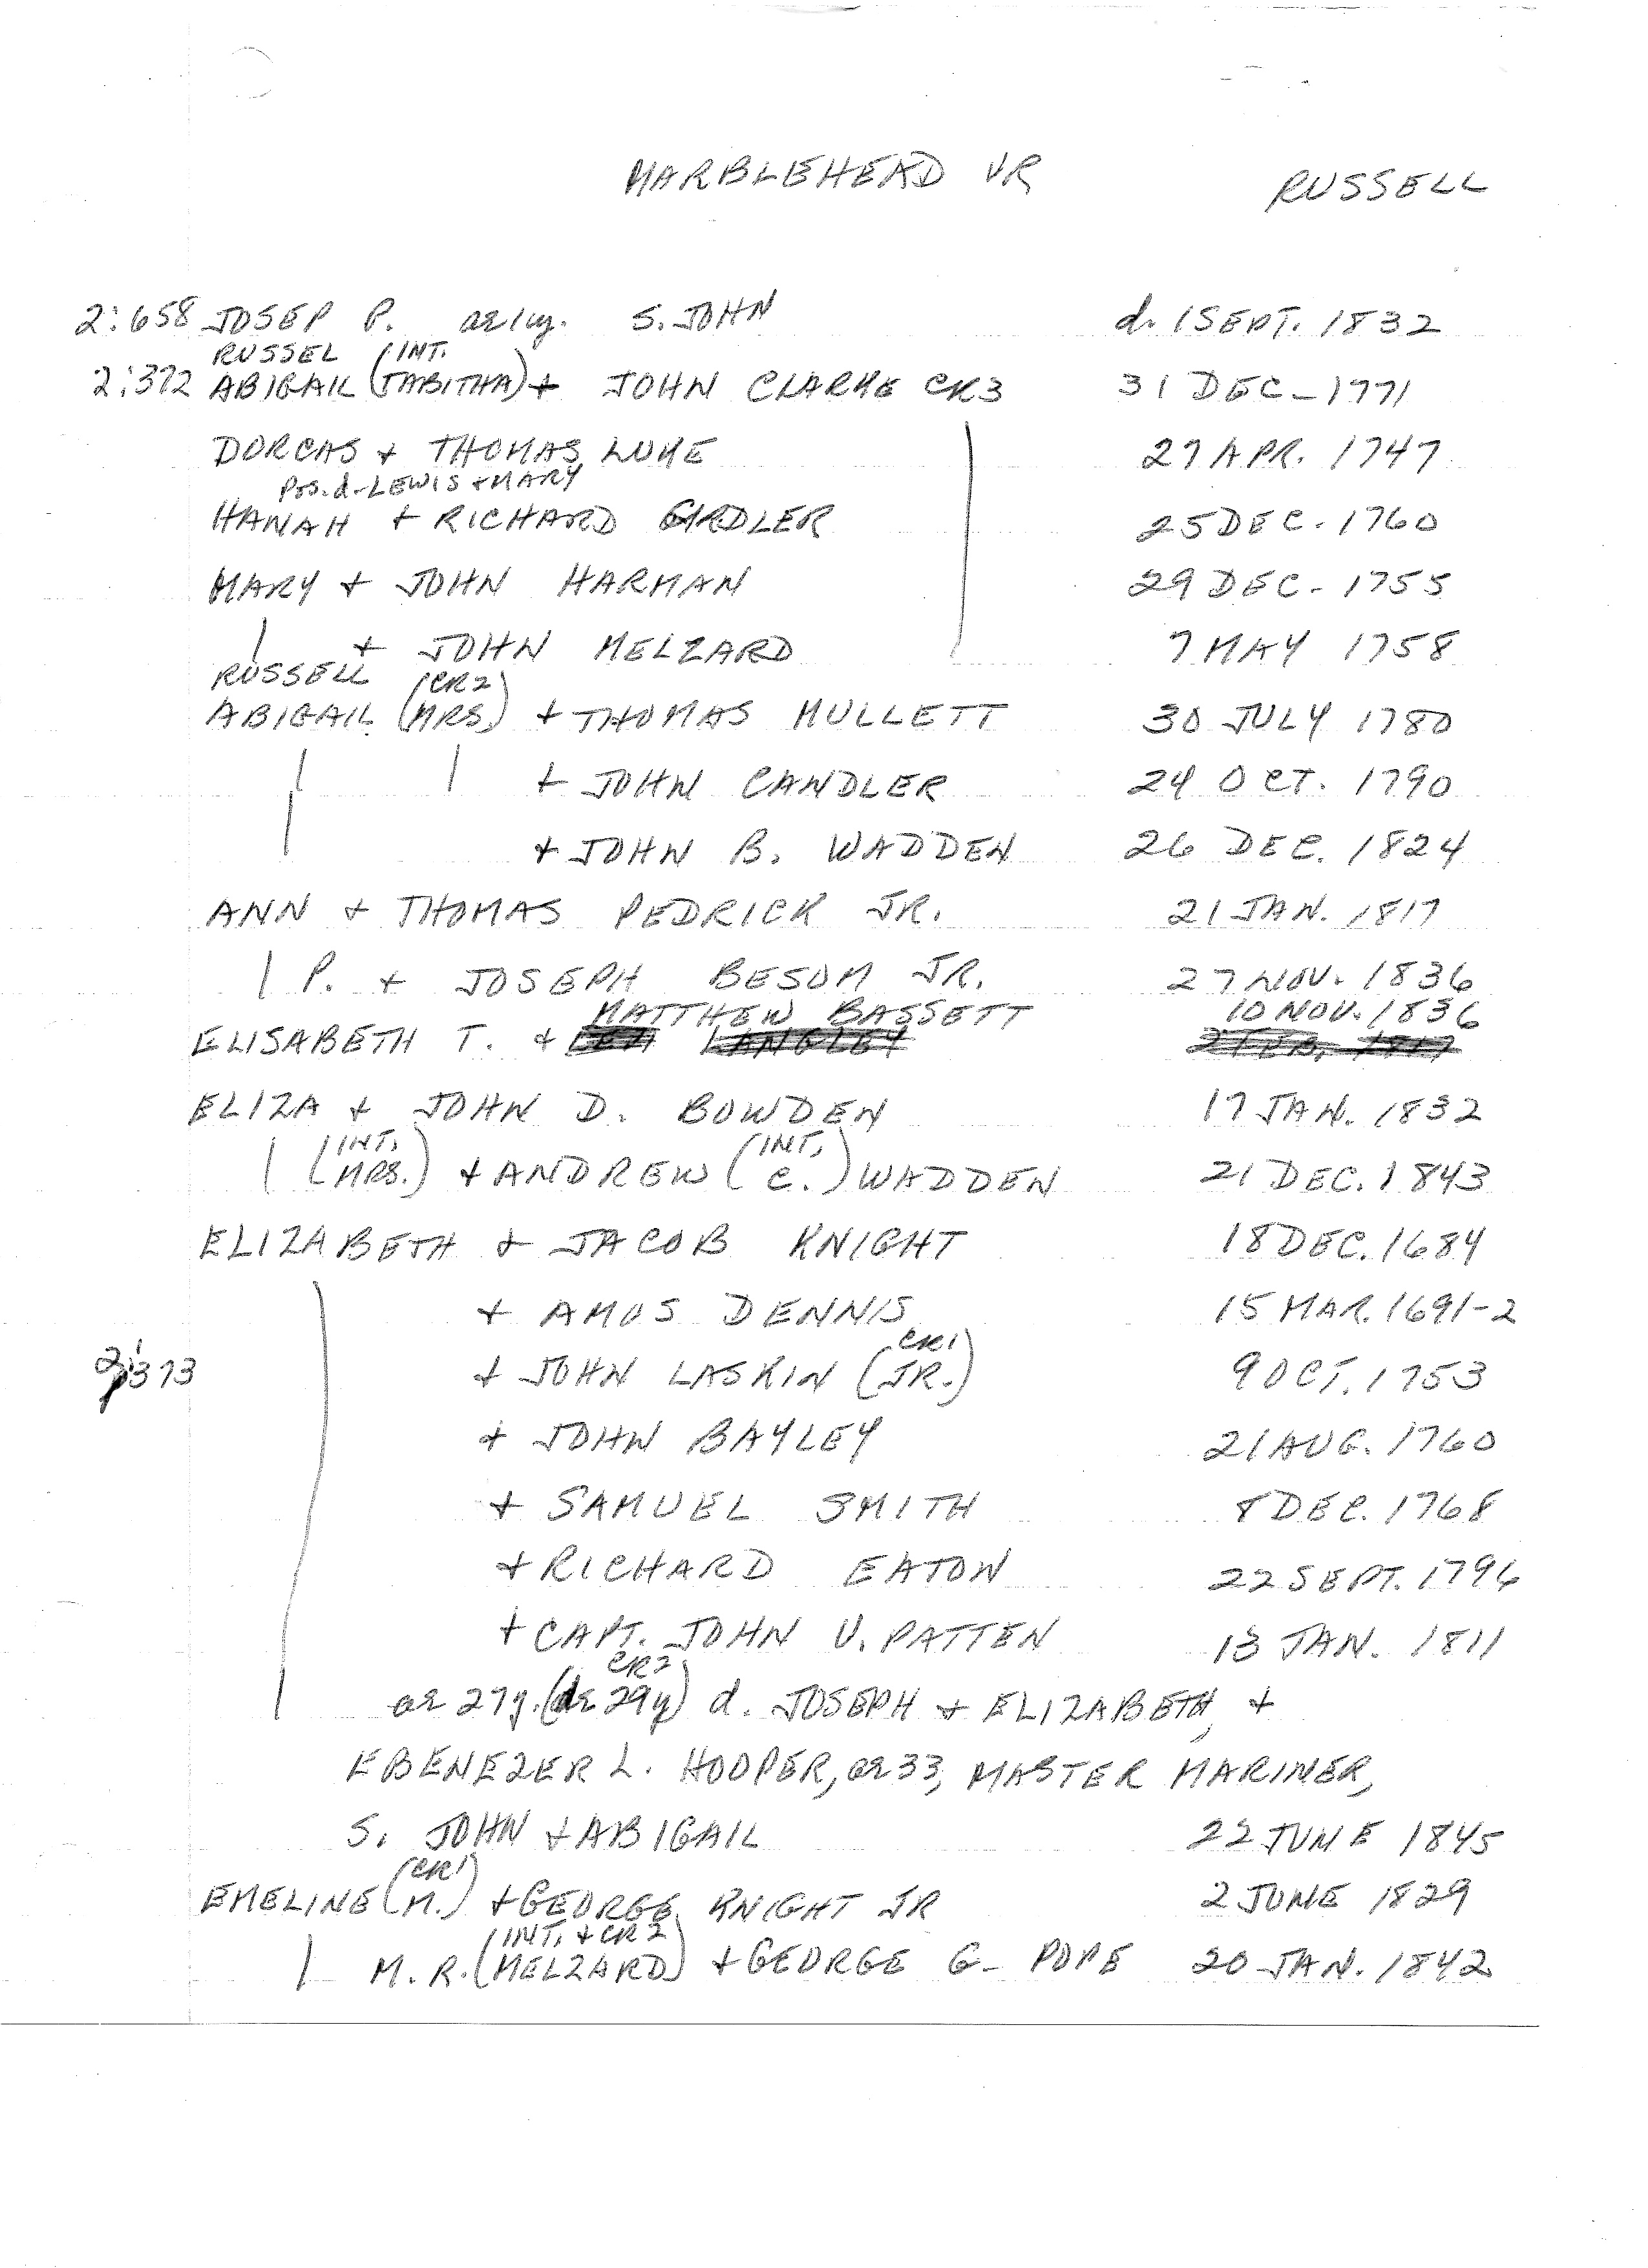 MARBLEHEAD VR RUSSELL
2:658 JOSEP P. ae 1 y. S. JOHN d. 1 SEPT. 1832
RUSSEL (INT.
2:372 ABIGAIL (TABITHA) + JOHN CLARKE CR3 31 DEC - 1771
DORCAS + THOMAS LUKE 27 APR. 1747
POS. d - LEWIS + MARY
HANAH + RICHARD GIRDLER 25 DEC. 1760
MARY + JOHN HARMAN 29 DEC - 1755
| + JOHN MELZARD 7 MAY 1758
RUSSELL (CR2)
ABIGAIL (MRS.) + THOMAS MULLETT 30 JULY 1780
| | + JOHN CANDLER 24 OCT. 1790
| + JOHN B. WADDEN 26 DEC. 1824
ANN + THOMAS PEDRICK JR. 21 JAN. 1817
| P. + JOSEPH BESOM JR. 27 NOV. 1836
MATTHEW BASSETT 10 NOV. 1836
ELISABETH T. + LANGLEY
ELIZA + JOHN D. BOWDEN 17 JAN. 1832
(INT. (INT.
| (MRS.) + ANDREW (C.) WADDEN 21 DEC. 1843
ELIZABETH + JACOB KNIGHT 18 DEC. 1684
+ AMOS DENNIS 15 MAR. 1691-2
CR1
2:373 + JOHN LASKIN (JR.) 9 OCT. 1753
+ JOHN BAYLEY 21 AUG. 1760
+ SAMUEL SMITH 8 DEC. 1768
+ RICHARD EATON 22 SEPT. 1796
+ CAPT. JOHN V. PATTEN 13 JAN. 1811
CR2
ae 27 y. (ae 29 y) d. JOSEPH + ELIZABETH, +
EBENEZER L. HOOPER, ae 33, MASTER MARINER,
S. JOHN + ABIGAIL 22 JUNE 1845
(CR1)
EMELINE (M.) + GEORGE KNIGHT JR 2 JUNE 1829
(INT. + CR2)
| M. R. (MELZARD) + GEORGE G - POPE 20 JAN. 1842